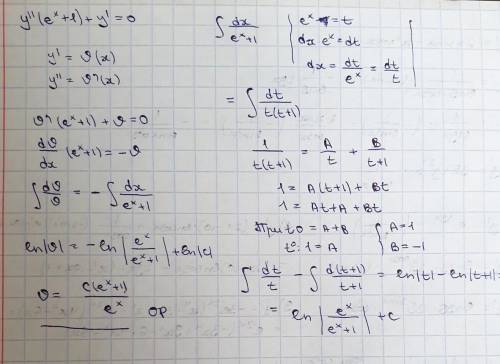 y''(eˣ+1)+y'=0
y' = ϑ(x)
y'' = ϑ'(x)
ϑ'(eˣ+1)+ϑ=0
dϑ/dx (eˣ+1) = -ϑ
∫ dϑ/ϑ = -∫ dx/(eˣ+1)
ln|ϑ| = -ln|eˣ/(eˣ+1)| + ln|c|
ϑ = c(eˣ+1)/eˣ ОР
∫ dx/(eˣ+1)
eˣ = t
dx eˣ = dt
dx = dt/eˣ = dt/t
= ∫ dt/(t(t+1))
1/(t(t+1)) = A/t + B/(t+1)
1 = A(t+1) + Bt
1 = At + A + Bt
При t 0 = A+B
t⁰: 1 = A
{ A=1
B=-1
∫ dt/t - ∫ d(t+1)/(t+1) = ln|t| - ln|t+1| =
= ln|eˣ/(eˣ+1)| + c